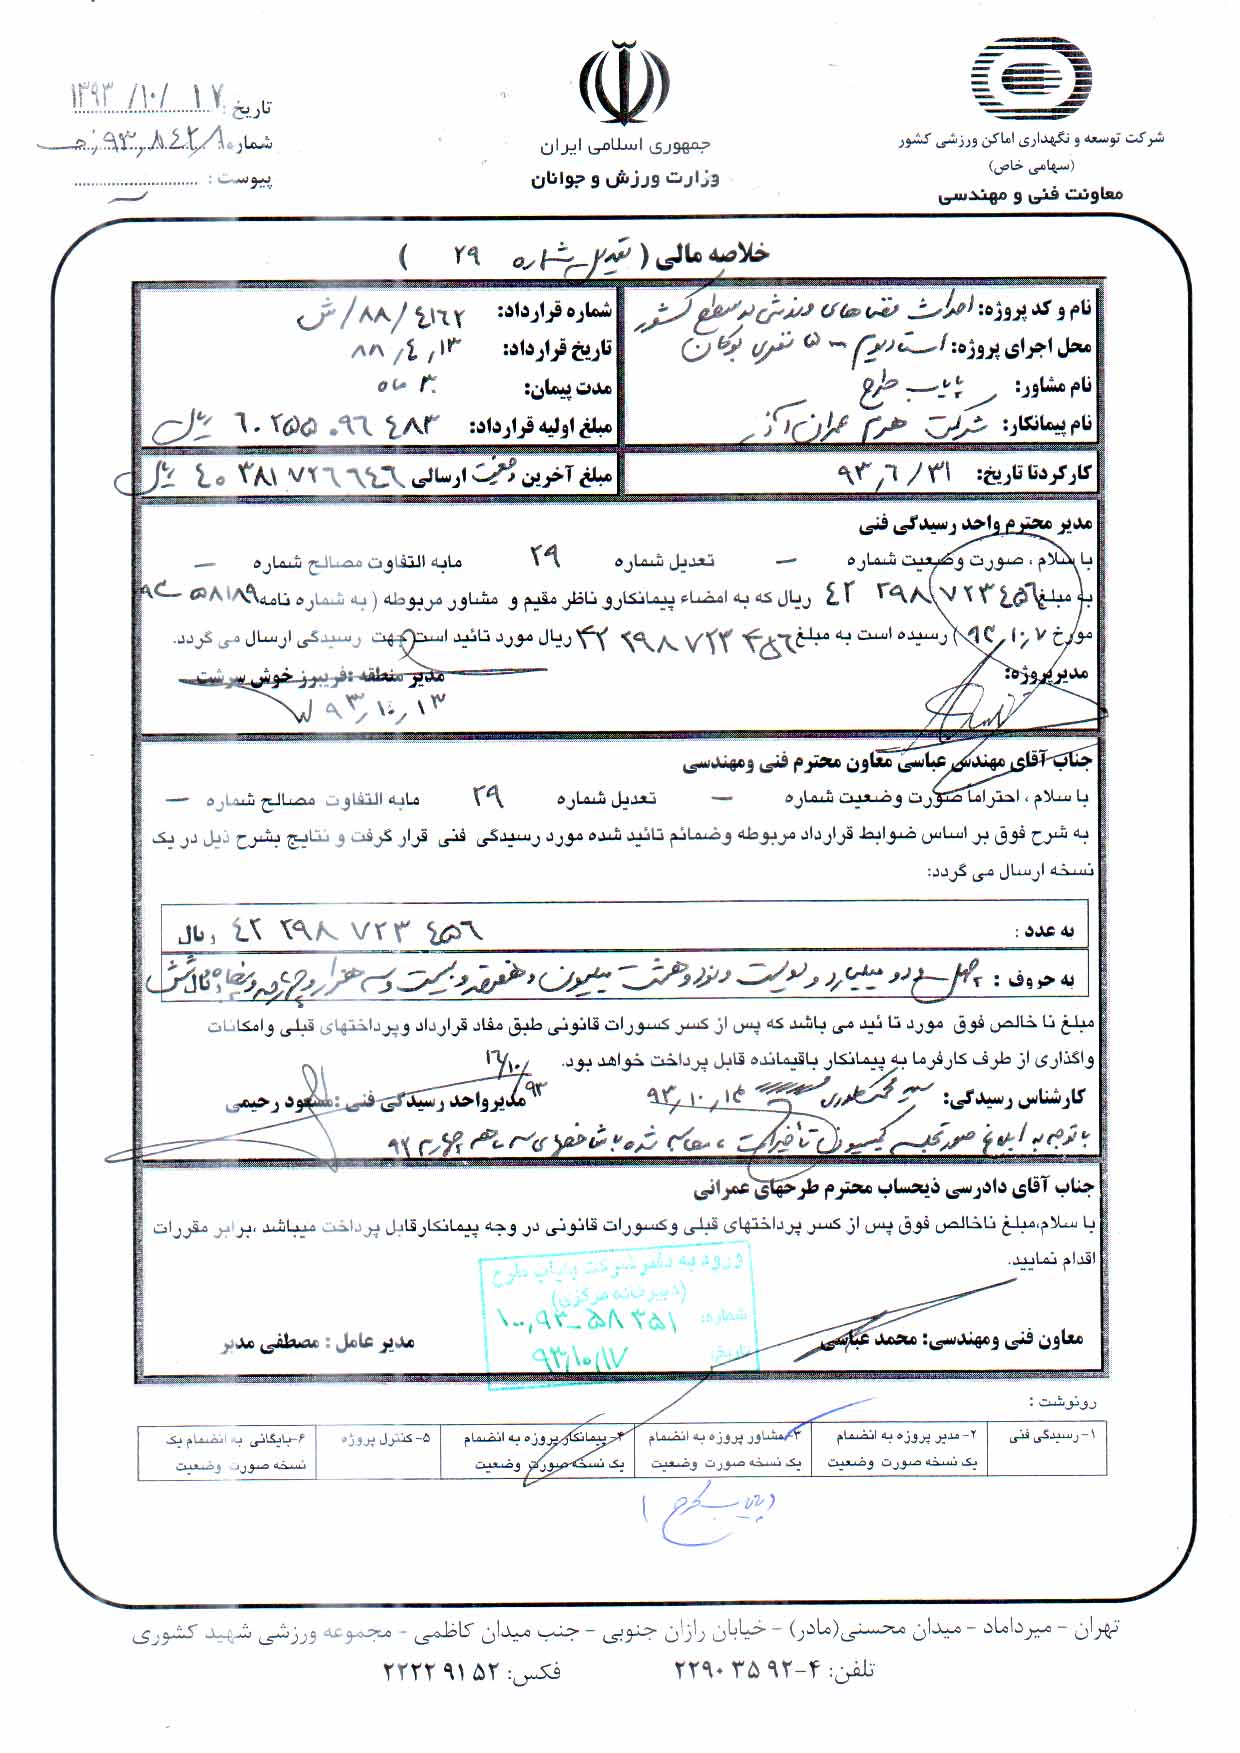 شرکت توسعه و نگهداری اماکن ورزشی کشور
(سهامی خاص)
معاونت فنی و مهندسی
جمهوری اسلامی ایران
وزارت ورزش و جوانان
تاریخ: ۱۳۹۳/۱۰/۱۷
شماره:
پیوست:
خلاصه مالی ( تعدیل شماره ۲۹ )
نام و کد پروژه: احداث فضاهای ورزشی در سطح کشور
محل اجرای پروژه: استادیوم ۵۰۰۰ نفری بوکان
نام مشاور: پایاب طرح
نام پیمانکار: شرکت هرم عمران آذر
شماره قرارداد: ۸۸/۴۱۶۲/ش
تاریخ قرارداد: ۸۸,۴,۱۳
مدت پیمان: ۳۰ ماه
مبلغ اولیه قرارداد: ۶۰ ۲۵۵ ۰۹۶ ۴۸۳ ریال
کارکرد تا تاریخ: ۹۳,۶/۳۱
مبلغ آخرین وضعیت ارسالی ۴۰ ۳۸۱ ۷۲۶ ۶۴۶ ریال
مدیر محترم واحد رسیدگی فنی
با سلام ، صورت وضعیت شماره — تعدیل شماره ۲۹ مابه التفاوت مصالح شماره —
به مبلغ ۴۲ ۲۹۸ ۷۲۳ ۴۵۶ ریال که به امضاء پیمانکارو ناظر مقیم و مشاور مربوطه ( به شماره نامه
مورخ ۹۳,۱۰,۷ ) رسیده است به مبلغ ۴۲ ۲۹۸ ۷۲۳ ۴۵۶ ریال مورد تائید است جهت رسیدگی ارسال می گردد.
مدیر پروژه:
مدیر منطقه :فریبرز خوش سرشت
۹۳,۱۰,۱۳
جناب آقای مهندس عباسی معاون محترم فنی ومهندسی
با سلام ، احتراما صورت وضعیت شماره — تعدیل شماره ۲۹ مابه التفاوت مصالح شماره —
به شرح فوق بر اساس ضوابط قرارداد مربوطه وضمائم تائید شده مورد رسیدگی فنی قرار گرفت و نتایج بشرح ذیل در یک
نسخه ارسال می گردد:
به عدد : ۴۲ ۲۹۸ ۷۲۳ ۴۵۶ ریال
به حروف : چهل و دو میلیارد و دویست و نود و هشت میلیون و هفتصد و بیست و سه هزار و چهارصد و پنجاه و شش ریال
مبلغ نا خالص فوق مورد تا ئید می باشد که پس از کسر کسورات قانونی طبق مفاد قرارداد وپرداختهای قبلی وامکانات
واگذاری از طرف کارفرما به پیمانکار باقیمانده قابل پرداخت خواهد بود.
کارشناس رسیدگی:
مدیرواحد رسیدگی فنی :مسعود رحیمی
۹۳/۱۰/۱۶
با توجه به ابلاغ صورتجلسه کمیسیون تأخیرات ، محاسبه شده با شاخصهای سه ماهه چهارم ۹۲
جناب آقای دادرسی ذیحساب محترم طرحهای عمرانی
با سلام،مبلغ ناخالص فوق پس از کسر پرداختهای قبلی وکسورات قانونی در وجه پیمانکارقابل پرداخت میباشد ،برابر مقررات
اقدام نمایید.
ورود به دفتر شرکت پایاب طرح
(دبیرخانه مرکزی)
شماره: ۱۰۰,۹۳-۵۸۳۵۱
تاریخ: ۹۳/۱۰/۱۷
معاون فنی ومهندسی: محمد عباسی
مدیر عامل : مصطفی مدبر
رونوشت :
۱-رسیدگی فنی
۲-مدیر پروژه به انضمام یک نسخه صورت وضعیت
۳-مشاور پروژه به انضمام یک نسخه صورت وضعیت
۴-پیمانکار پروژه به انضمام یک نسخه صورت وضعیت
۵-کنترل پروژه
۶-بایگانی به انضمام یک نسخه صورت وضعیت
( پایاب طرح )
تهران - میرداماد - میدان محسنی(مادر) - خیابان رازان جنوبی - جنب میدان کاظمی - مجموعه ورزشی شهید کشوری
تلفن: ۴-۲۲۹۰۳۵۹۲ فکس: ۲۲۲۲۹۱۵۲